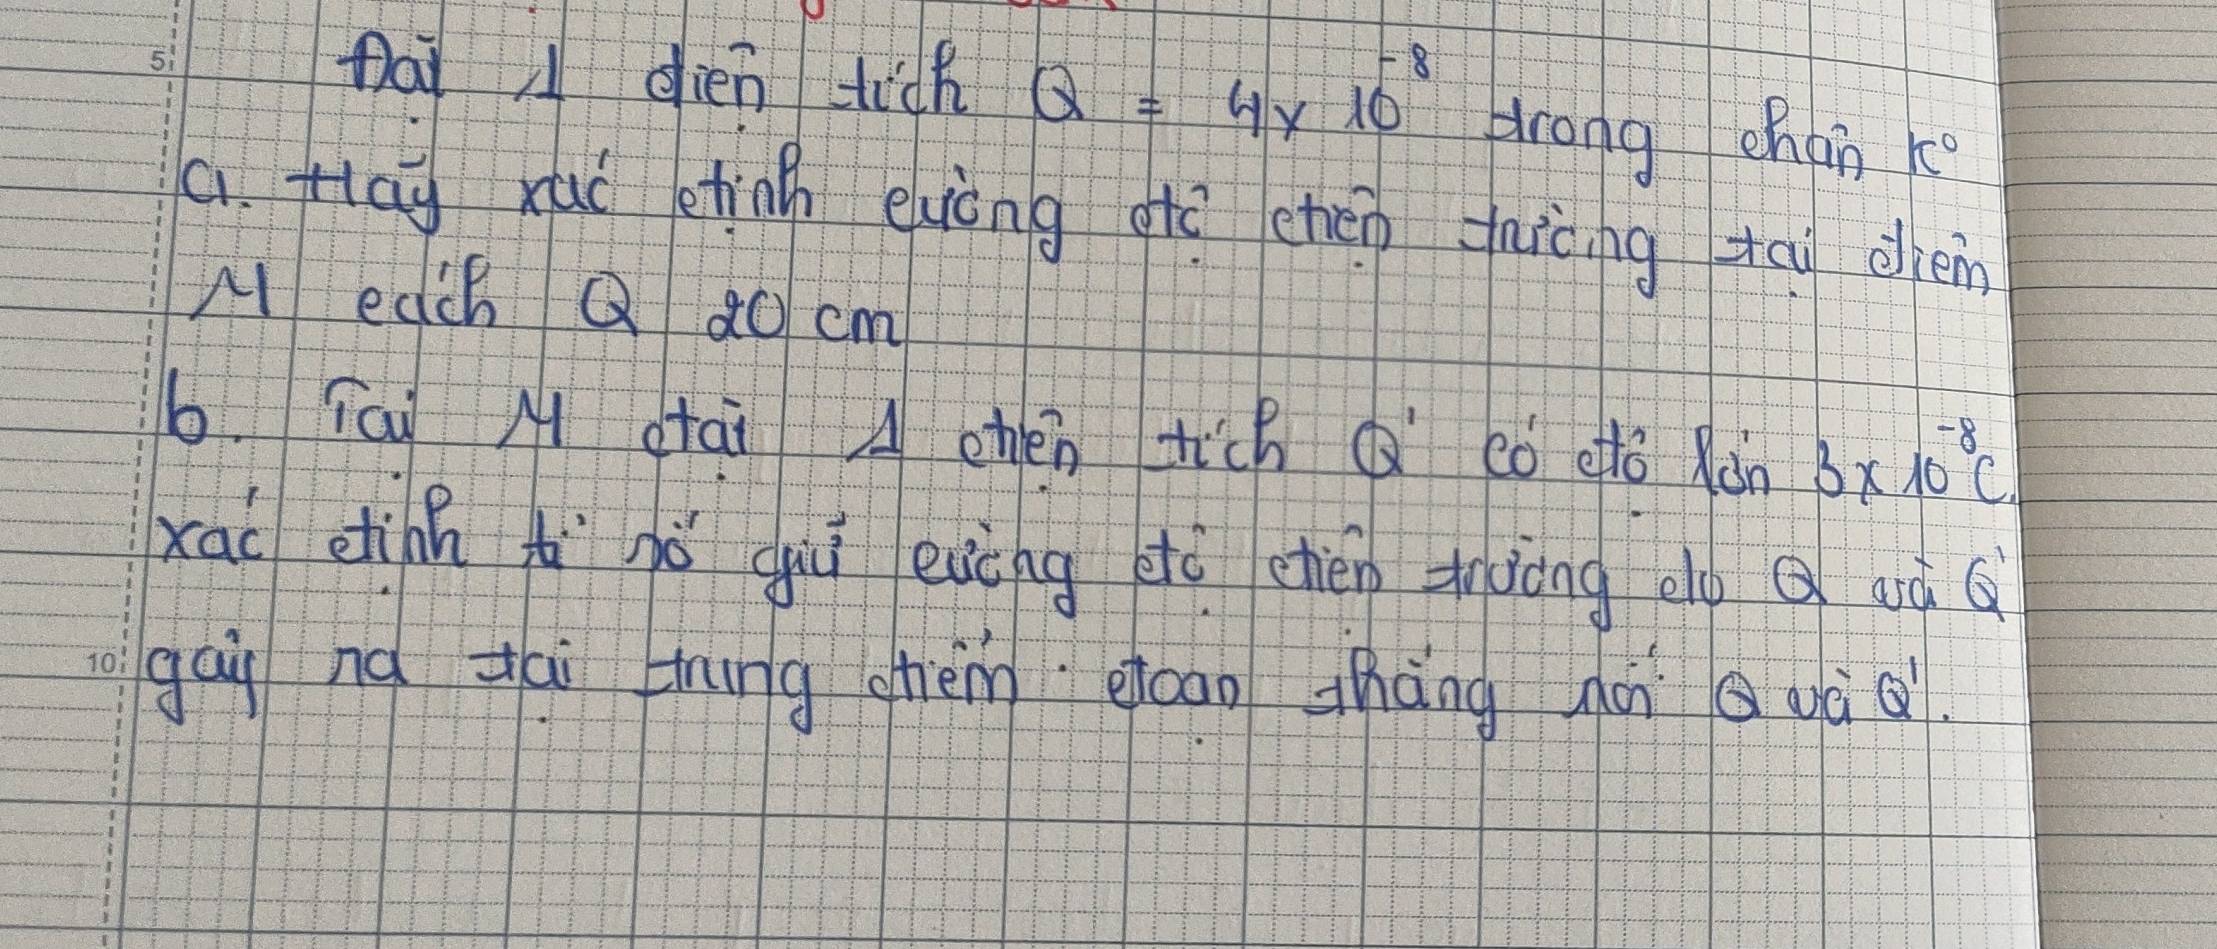 Đặt 1 điện tích Q = 4 x 10⁻⁸ trong chân k°
a. Hãy xác định cường độ điện trường tại điểm
M cách Q 20 cm
b. Tại M đặt 1 điện tích Q' có độ lớn 3 x 10⁻⁸C.
xác định tỉ số giữ cường độ điện trường do Q và Q'
gây na tại trung điểm đoạn thẳng nối Q và Q'.
5
10